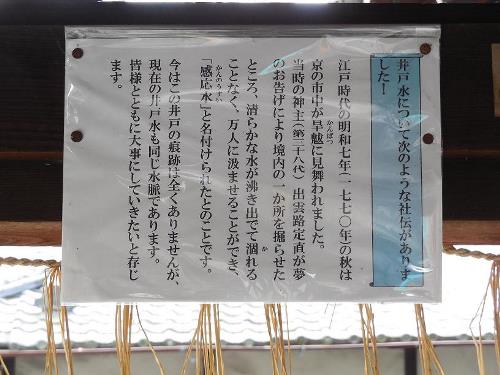 井戸水について次のような社伝がありま
した!
江戸時代の明和七年(一七七〇年)の秋は
京の市中が旱魃に見舞われました。
かんばつ
当時の神主(第二十八代)出雲路定直が夢
のお告げにより境内の一か所を掘らせた
ところ、清らかな水が沸き出でて涸れる
ことなく、万人に汲ませることができ、
「感応水」と名付けられたとのことです。
かんのうすい
今はこの井戸の痕跡は全くありませんが、
現在の井戸水も同じ水脈であります。
皆様とともに大事にしていきたいと存じ
ます。